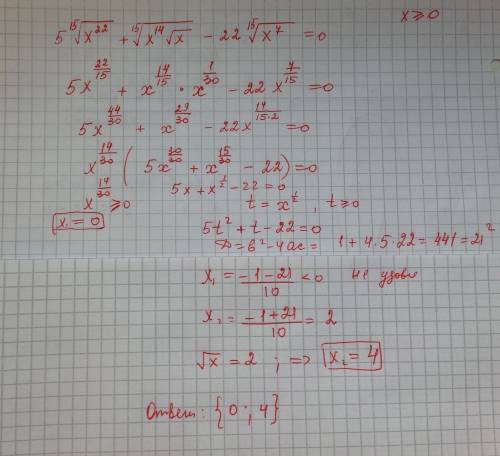 x ≥ 0
5 ¹⁵√(x²²) + ¹⁵√(x¹⁴√x) − 22 ¹⁵√(x⁷) = 0
5x^(22/15) + x^(14/15) · x^(1/30) − 22x^(7/15) = 0
5x^(44/30) + x^(29/30) − 22x^(14/(15·2)) = 0
x^(14/30) ( 5x^(30/30) + x^(15/30) − 22) = 0
x^(14/30) ≥ 0 5x + x^(1/2) − 22 = 0
x₁ = 0 t = x^(1/2) , t ≥ 0
5t² + t − 22 = 0
D = b² − 4ac = 1 + 4.5.22 = 441 = 21²
x₁ = (−1−21)/10 < 0 не удовл
x₂ = (−1+21)/10 = 2
√x = 2 ; => x₂ = 4
Ответ: {0 ; 4}